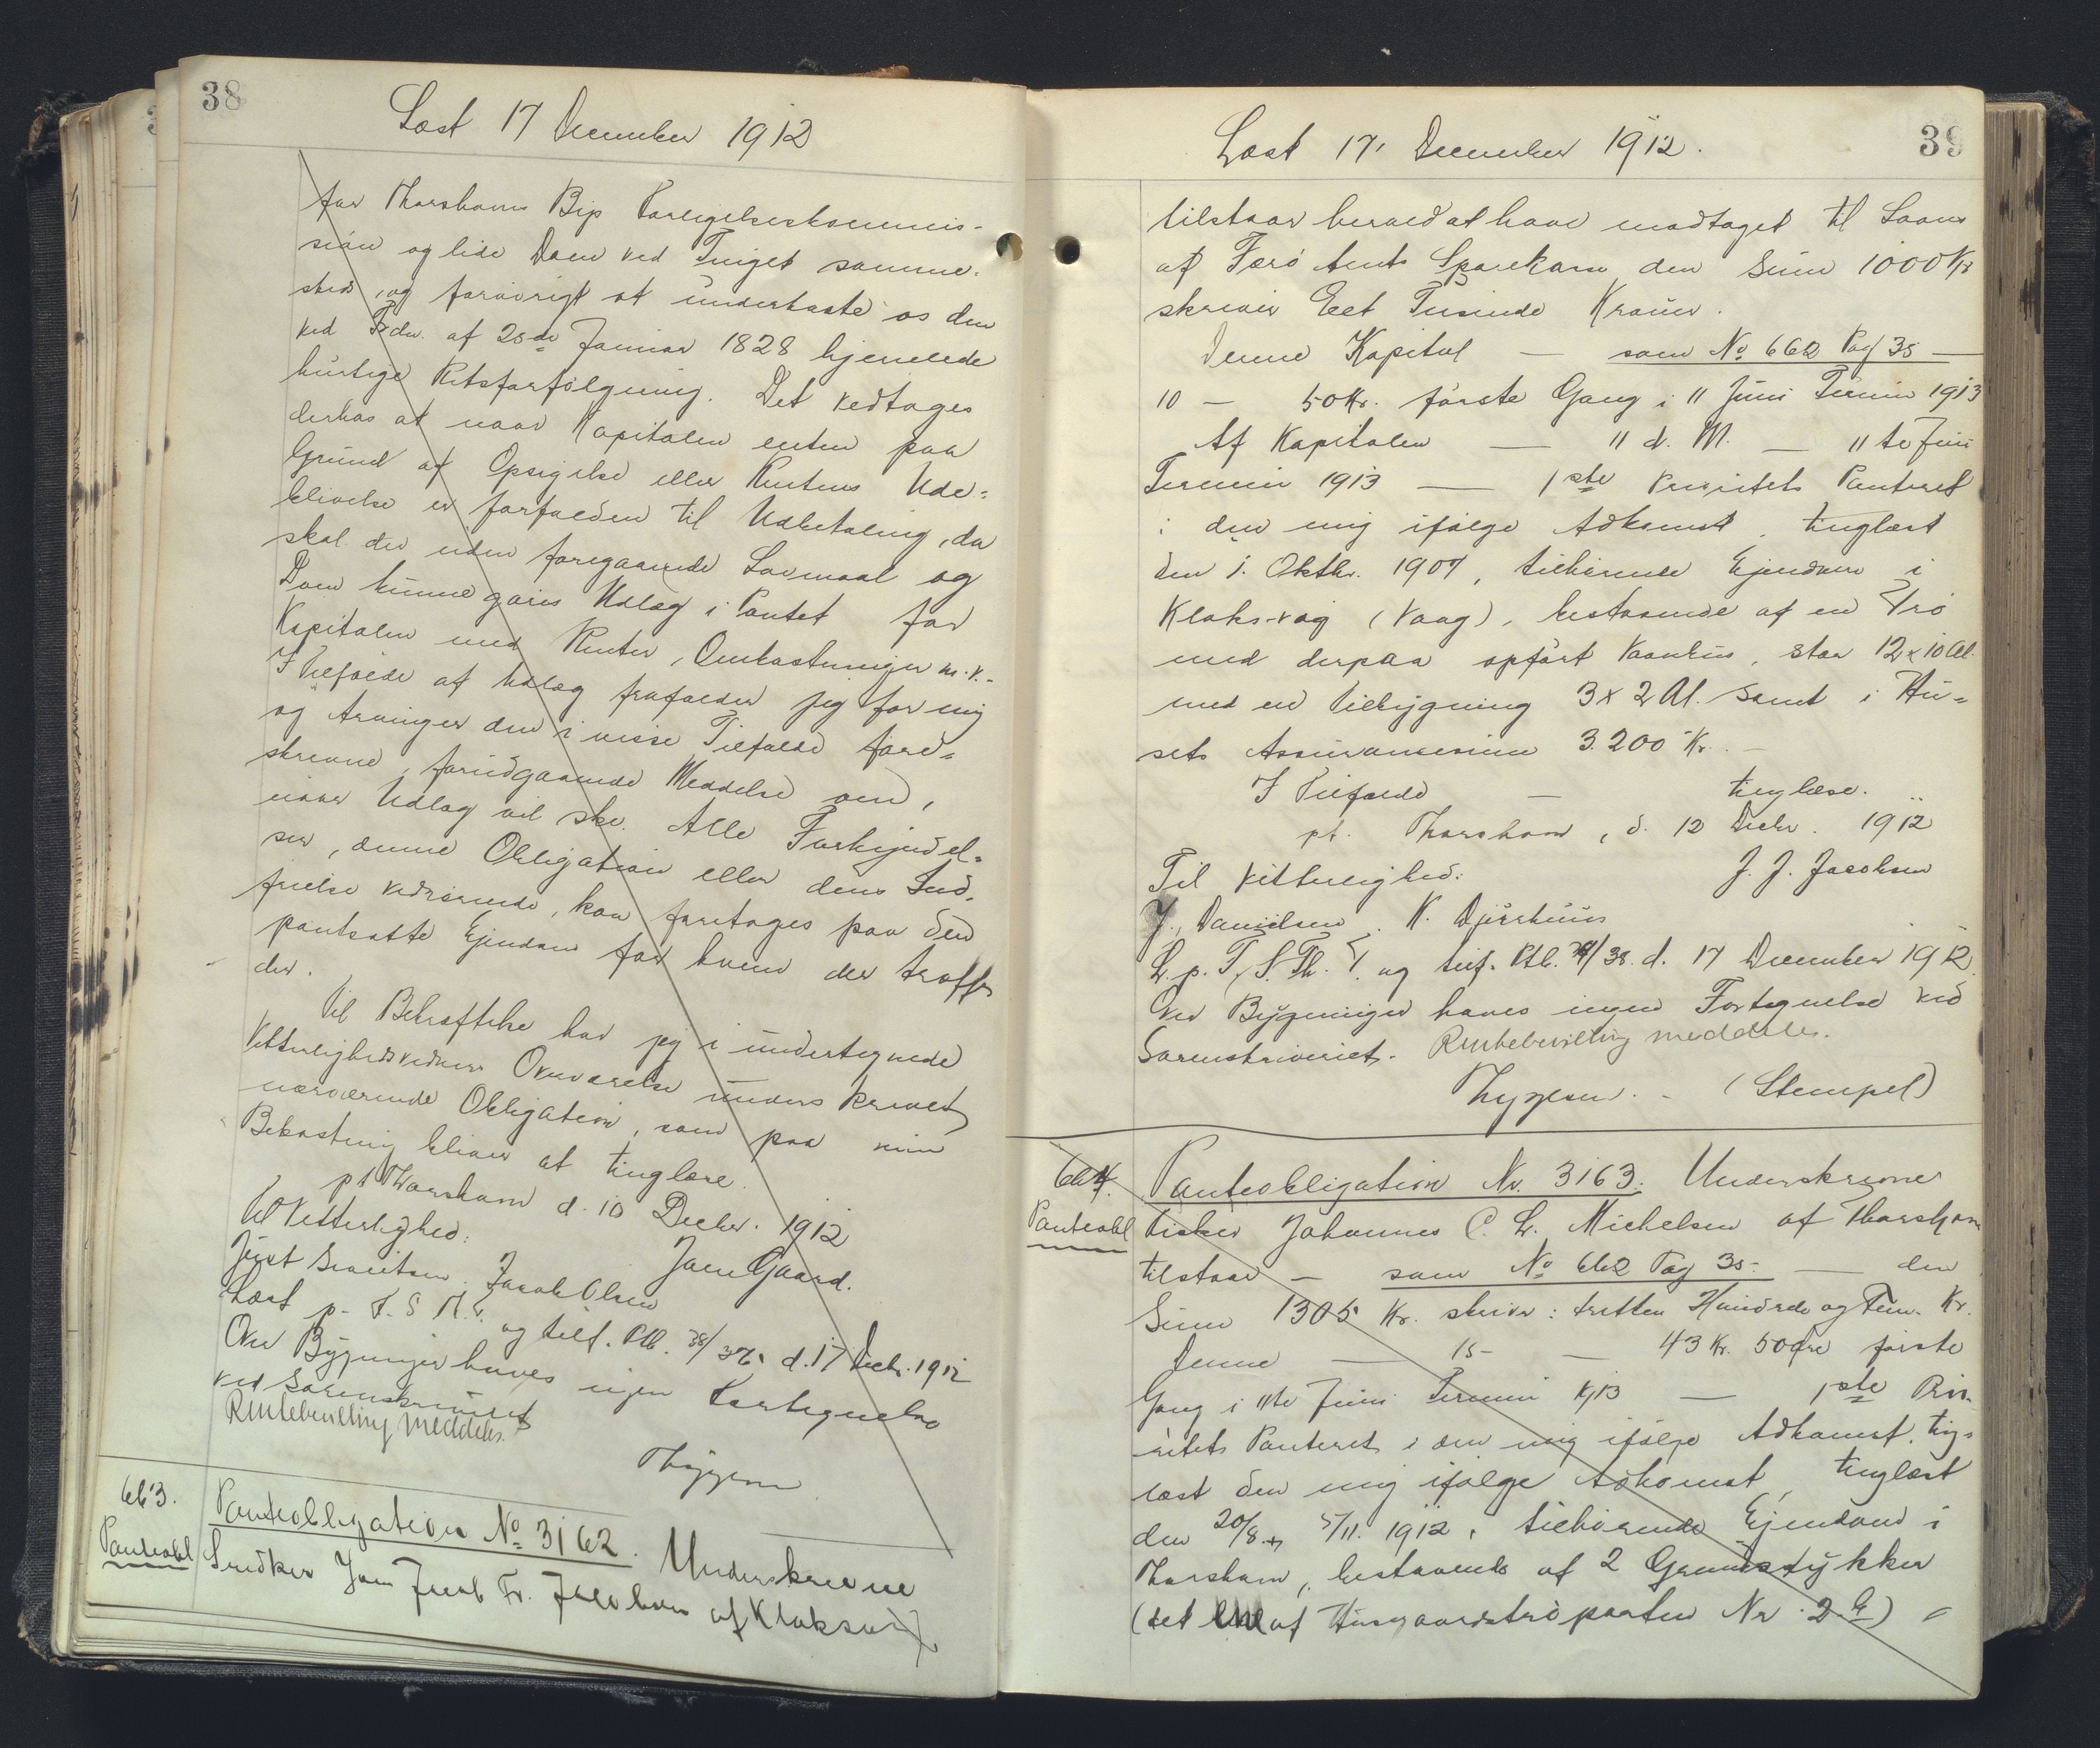 38
Læst 17 December 1912
for Thorshavns Byes Forligelseskommis-
sion og lide Dom ved Tinget samme-
steds, og forøvrigt at underkaste os den
ved Frdn. af 25de Januar 1828 hjemlede
hurtige Retsforfølgning. Det vedtages
derhos at naar Kapitalen enten paa
Grund af Opsigelse eller Rentens Ude-
blivelse er forfalden til Udbetaling, da
skal der uden foregaaende Lovmaal og
Dom kunne gøres Udlæg i Pantet for
Kapitalen med Renter, Omkostninger m.v.-
I Tilfælde af Udlæg frafalder jeg for mig
og Arvinger den i visse Tilfælde fore-
skrevne, forudgaaende Meddelse om,
naar Udlæg vil ske. Alle Forkyndel-
ser, denne Obligation eller dens Ind-
frielse vedrørende, kan foretages paa den
pantsatte Ejendom for hvem der træffes
der.
Til Bekræftelse har jeg i undertegnede
Vitterlighedsvidners Overværelse underskrevet
nærværende Obligation, som paa min
Bekostning bliver at tinglæse.
pt Thorshavn d. 10 Decbr. 1912
Til Vitterlighed:
Jane Gaard.
Just Sivertsen. Jacob Olsen
Læst p. F. S Th. T. og tilf. Ptb. 38/376 d. 17 Decb. 1912
Over Bygninger haves ingen Fortegnelse
ved Sorenskriveriet
Rentebevilling meddeles.
Thygesen
663.
Panteobl
Panteobligation No 3162. Underskrevne
Snedker Jens Jacob Fr. Jacobsen af Klaksvig
39
Læst 17, December 1912.
tilstaar herved at have modtaget til Laans
af Færø Amts Sparekasse den Sum 1000 Kr
skriver Eet Tusinde Kroner.
Denne Kapital — som No 662 Pag 35 —
10 — 50 Kr. første Gang i 11 Juni Termin 1913
Af Kapitalen — 11 d. M. — 11te Juni
Termin 1913 — 1ste Prioritets Panteret
i den mig ifølge Adkomst, tinglæst
den 1. Oktbr. 1907, tilhørende Ejendom i
Klaksvig (Vaag), bestaaende af en Trø
med derpaa opført Vaanhus, stor 12 x 10 Al.
med en Tilbygning 3 x 2 Al. samt i Hu-
sets Assurancesum 3.200 Kr. —
I Tilfælde — tinglæse.
pt. Thorshavn, d. 12 Decbr. 1912
Til Vitterlighed:
J. J. Jacobsen
J. Danielsen. N. Djurhuus
L. p. F. S. Th. T. og tilf. Ptb. 38. d. 17 December 1912.
Over Bygninger haves ingen Fortegnelse ved
Sorenskriveriet. Rentebevilling meddeles.
Thygesen. - (Stempel)
664.
Panteobl
Panteobligation Nr. 3163. Underskrevne
Fisker Johannes C. L. Michelsen af Thorshavn
tilstaar — som No 662 Pag 35 — den
Sum 1305 Kr. skriver: tretten Hundrede og Fem. Kr.
Denne — 15 — 43 Kr. 50 Øre første
Gang i 11te Juni Termin 1913 — 1ste Pri-
oritets Panteret i den mig ifølge Adkomst, ting-
læst den mig ifølge Adkomst, tinglæst
den 20/8. & 5/11. 1912, tilhørende Ejendom i
Thorshavn, bestaaende af 2 Grundstykker
(det ene af Husgaardstrøparten Nr. 2 G)